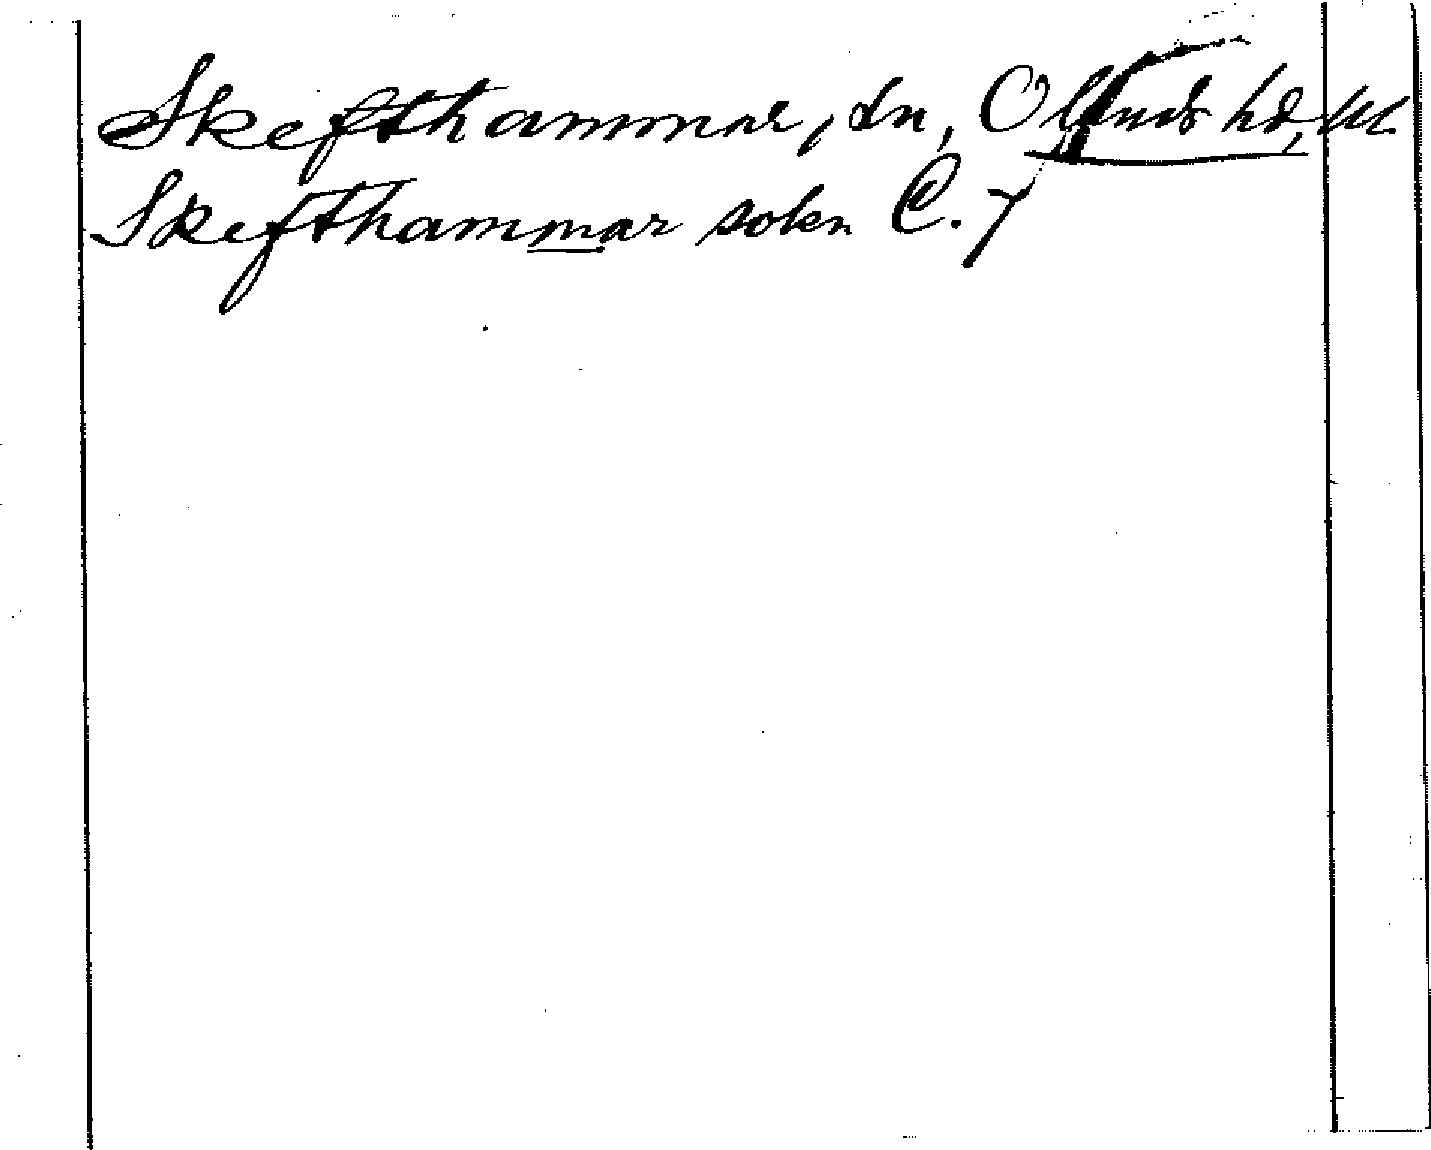 Skefthammar, sn, Olands hd, Ul.
Skefthammar soken C. 7